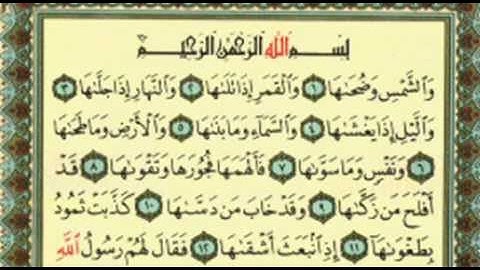 بِسْمِ اللَّهِ الرَّحْمَٰنِ الرَّحِيمِ
وَالشَّمْسِ وَضُحَىٰهَا ۝١ وَالْقَمَرِ إِذَا تَلَىٰهَا ۝٢ وَالنَّهَارِ إِذَا جَلَّىٰهَا ۝٣
وَالَّيْلِ إِذَا يَغْشَىٰهَا ۝٤ وَالسَّمَاءِ وَمَا بَنَىٰهَا ۝٥ وَالْأَرْضِ وَمَا طَحَىٰهَا
۝٦ وَنَفْسٍ وَمَا سَوَّىٰهَا ۝٧ فَأَلْهَمَهَا فُجُورَهَا وَتَقْوَىٰهَا ۝٨ قَدْ
أَفْلَحَ مَن زَكَّىٰهَا ۝٩ وَقَدْ خَابَ مَن دَسَّىٰهَا ۝١٠ كَذَّبَتْ ثَمُودُ
بِطَغْوَىٰهَا ۝١١ إِذِ انبَعَثَ أَشْقَىٰهَا ۝١٢ فَقَالَ لَهُمْ رَسُولُ اللَّهِ